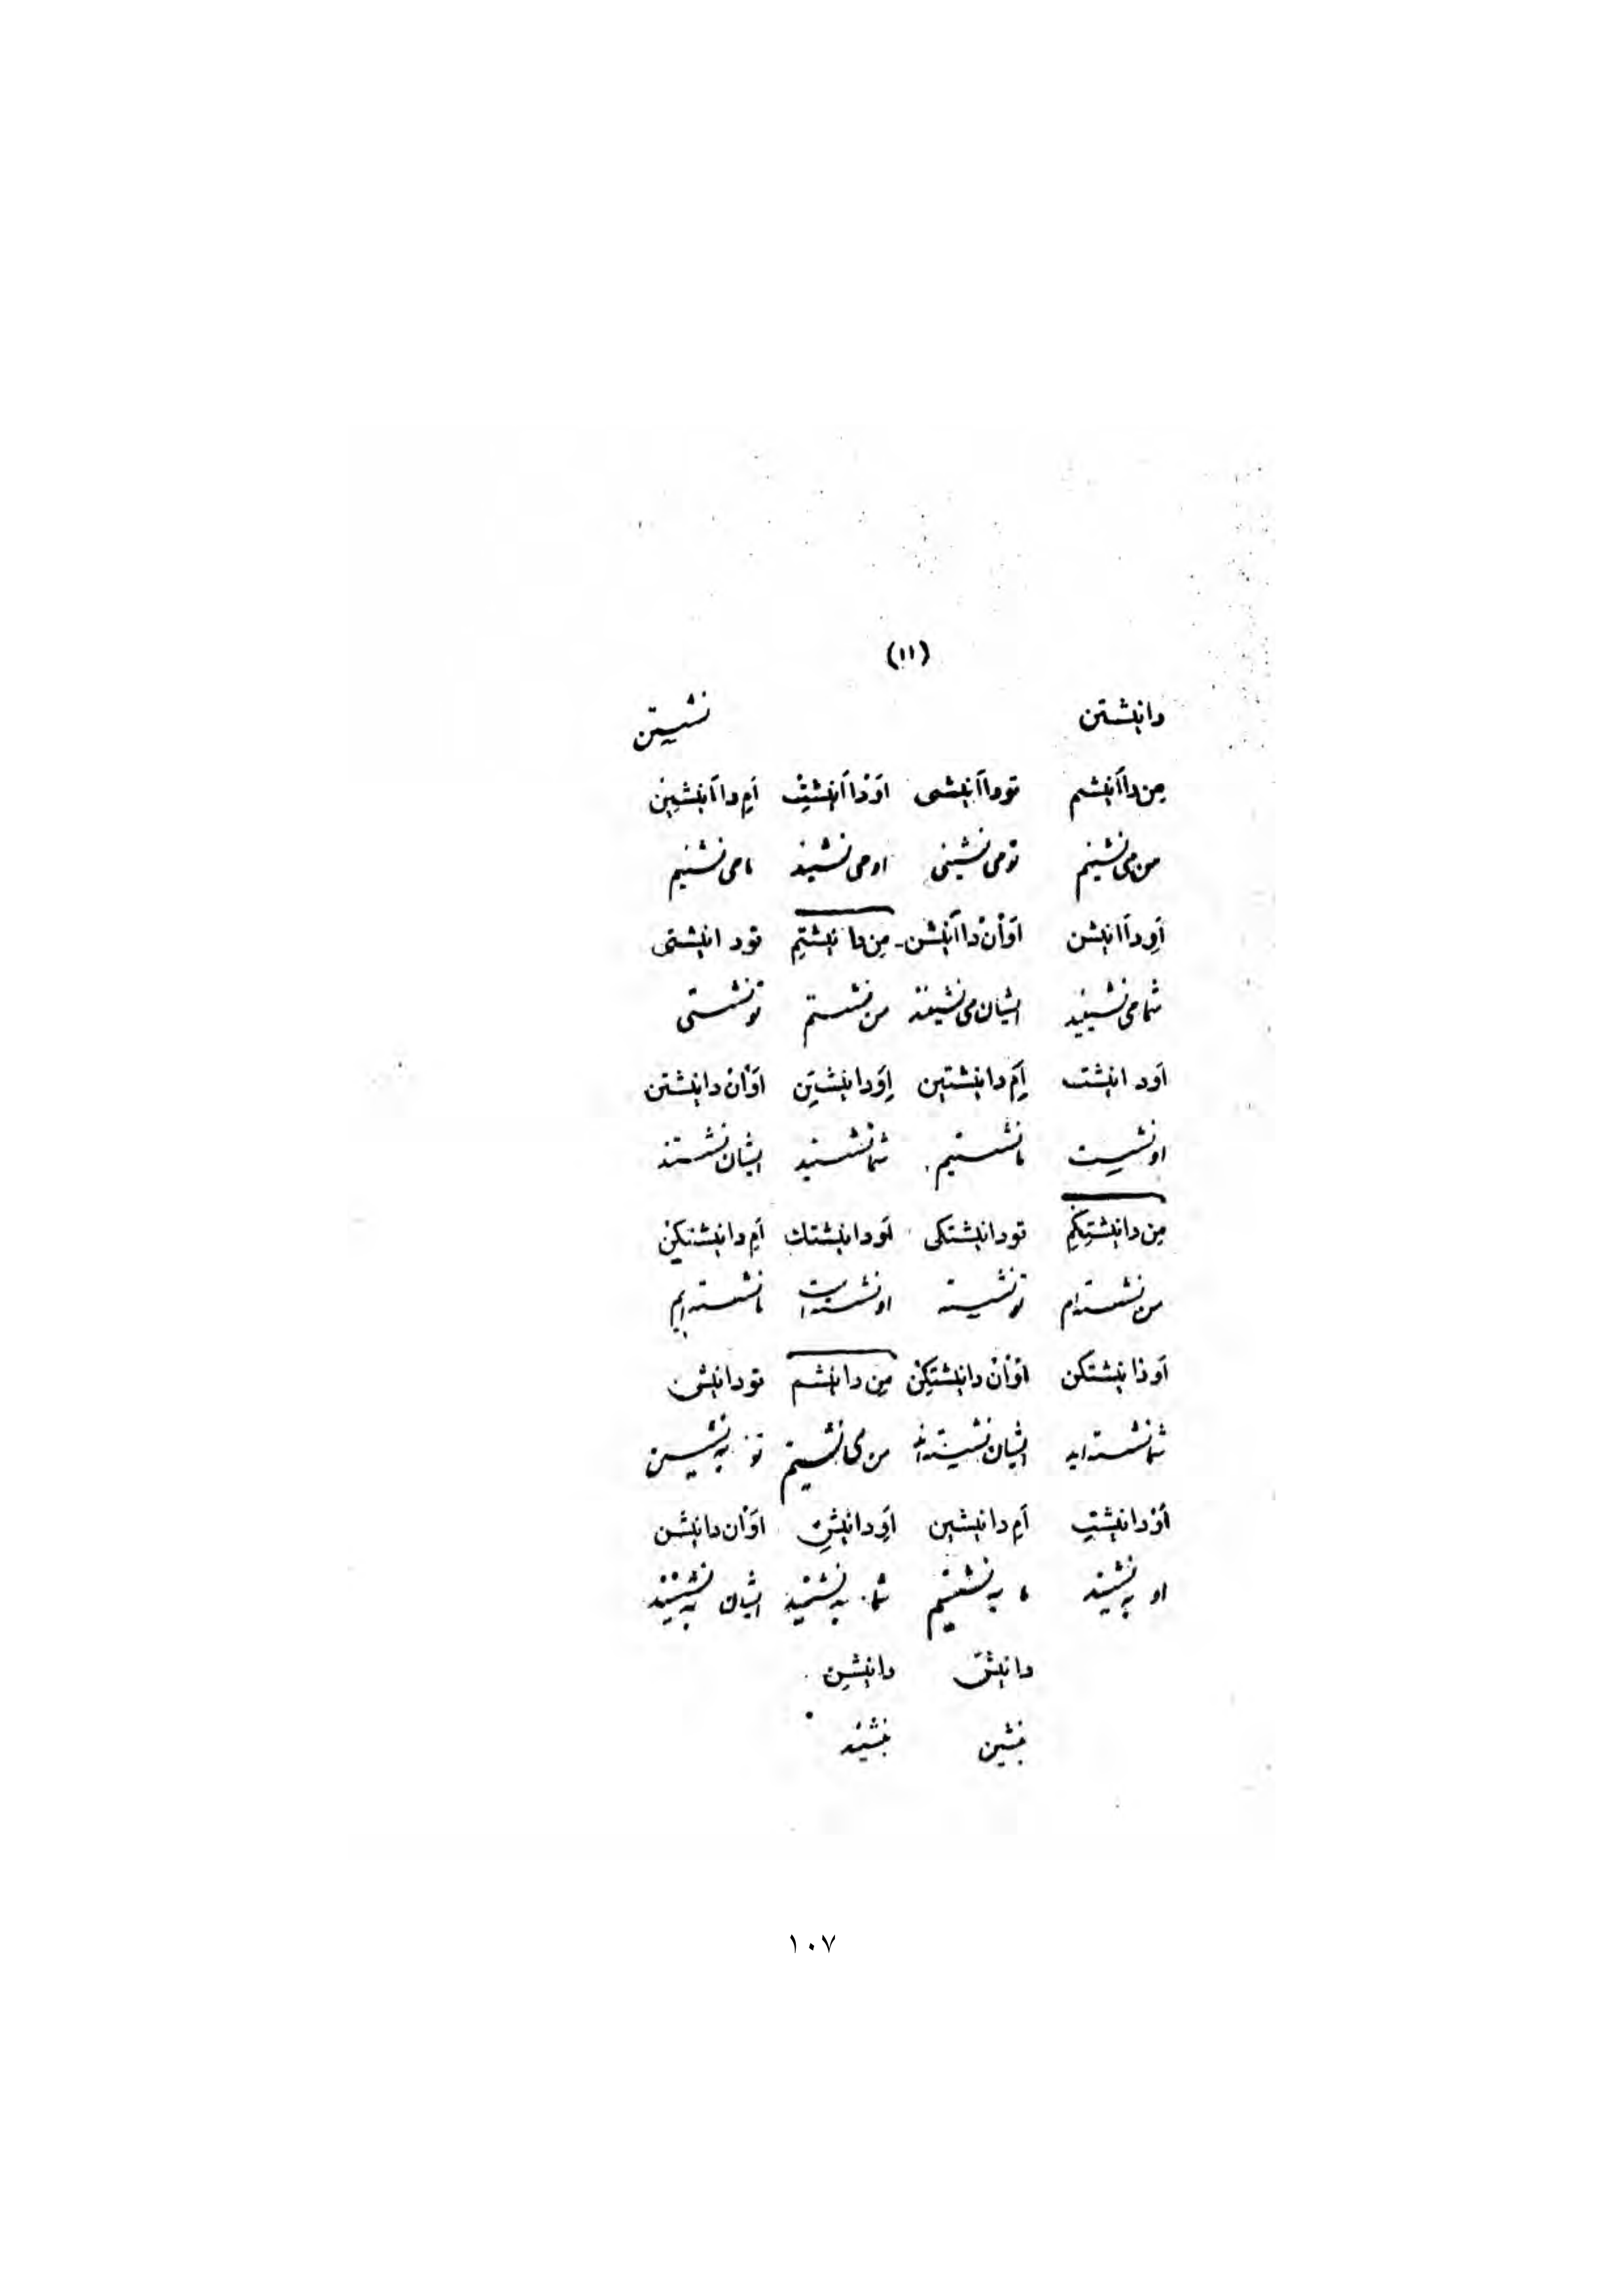 (۱۱)
دانِشتن نشستن
مِن داآنِشم تو داآنِشی اَوْ داآنِشِتْ اَمِ داآنِشین
من می نشینم تو می نشینی او می نشیند ما می نشینیم
اَوِ داآنشن اَوْان داآنشن - مِن دانِشتِم تو دانشتی
شما می نشینید ایشان می نشینند من نشستم تو نشستی
اَو دانشت اَمِ دانشتین اِوَ دانِشتِن اَوْان دانِشتن
او نشست ما نشستیم شما نشستید ایشان نشستند
مِن دانِشتِکِم تو دانشتکی اَو دانشتك اَمِ دانشتکین
من نشسته ام تو نشسته او نشسته است ما نشسته ایم
اَو دانشتکن اَوْان دانِشتِکِن مِن دانِشم تو دانش
شما نشسته اید ایشان نشسته اند من می نشینم تو به نشین
اَوْ دانِشتِ اَمِ دانشین اَوِ دانشِن اَوْان دانِشن
او به نشیند ما به نشینیم شما به نشنید ایشان به نشینند
دانِش دانِشِن
بنشین بنشیند
۱۰۷